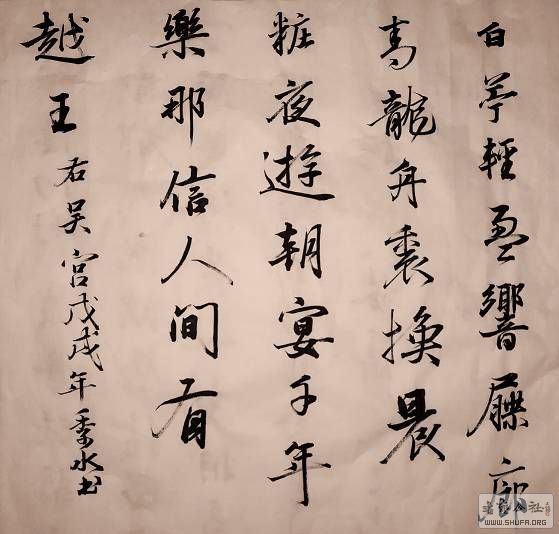 白苧輕盈響屧廊
青龍舟裏換晨
粧夜遊朝宴千年
樂那信人間有
越王 右吴宮戊戌年季水书
WWW.SHUFA.ORG